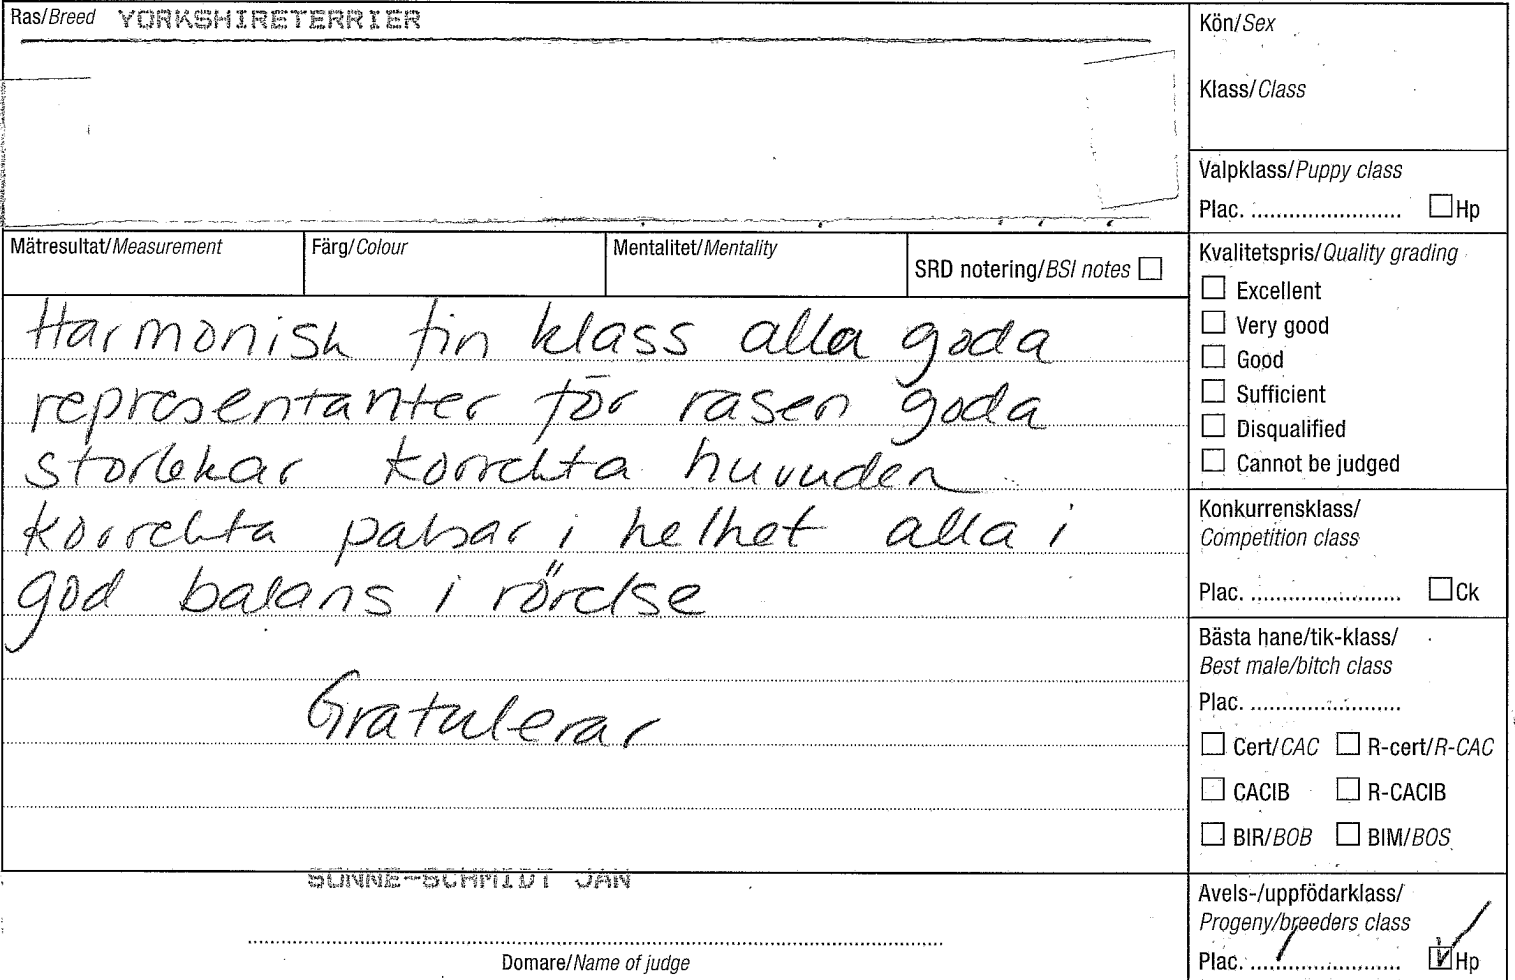 Ras/Breed YORKSHIRETERRIER
Kön/Sex
Klass/Class
Valpklass/Puppy class
Plac. ........................ Hp
Mätresultat/Measurement Färg/Colour Mentalitet/Mentality SRD notering/BSI notes
Kvalitetspris/Quality grading
Excellent
Very good
Good
Sufficient
Disqualified
Cannot be judged
Harmonisk fin klass alla goda
representanter för rasen goda
storlekar korrekta huvuden
korrekta pälsar i helhet alla i
god balans i rörelse
Gratulerar
Konkurrensklass/
Competition class
Plac. ........................ Ck
Bästa hane/tik-klass/
Best male/bitch class
Plac. ........................
Cert/CAC R-cert/R-CAC
CACIB R-CACIB
BIR/BOB BIM/BOS
SONNE-SCHMIDT JAN
Domare/Name of judge
Avels-/uppfödarklass/
Progeny/breeders class
Plac. ....1.................... Hp